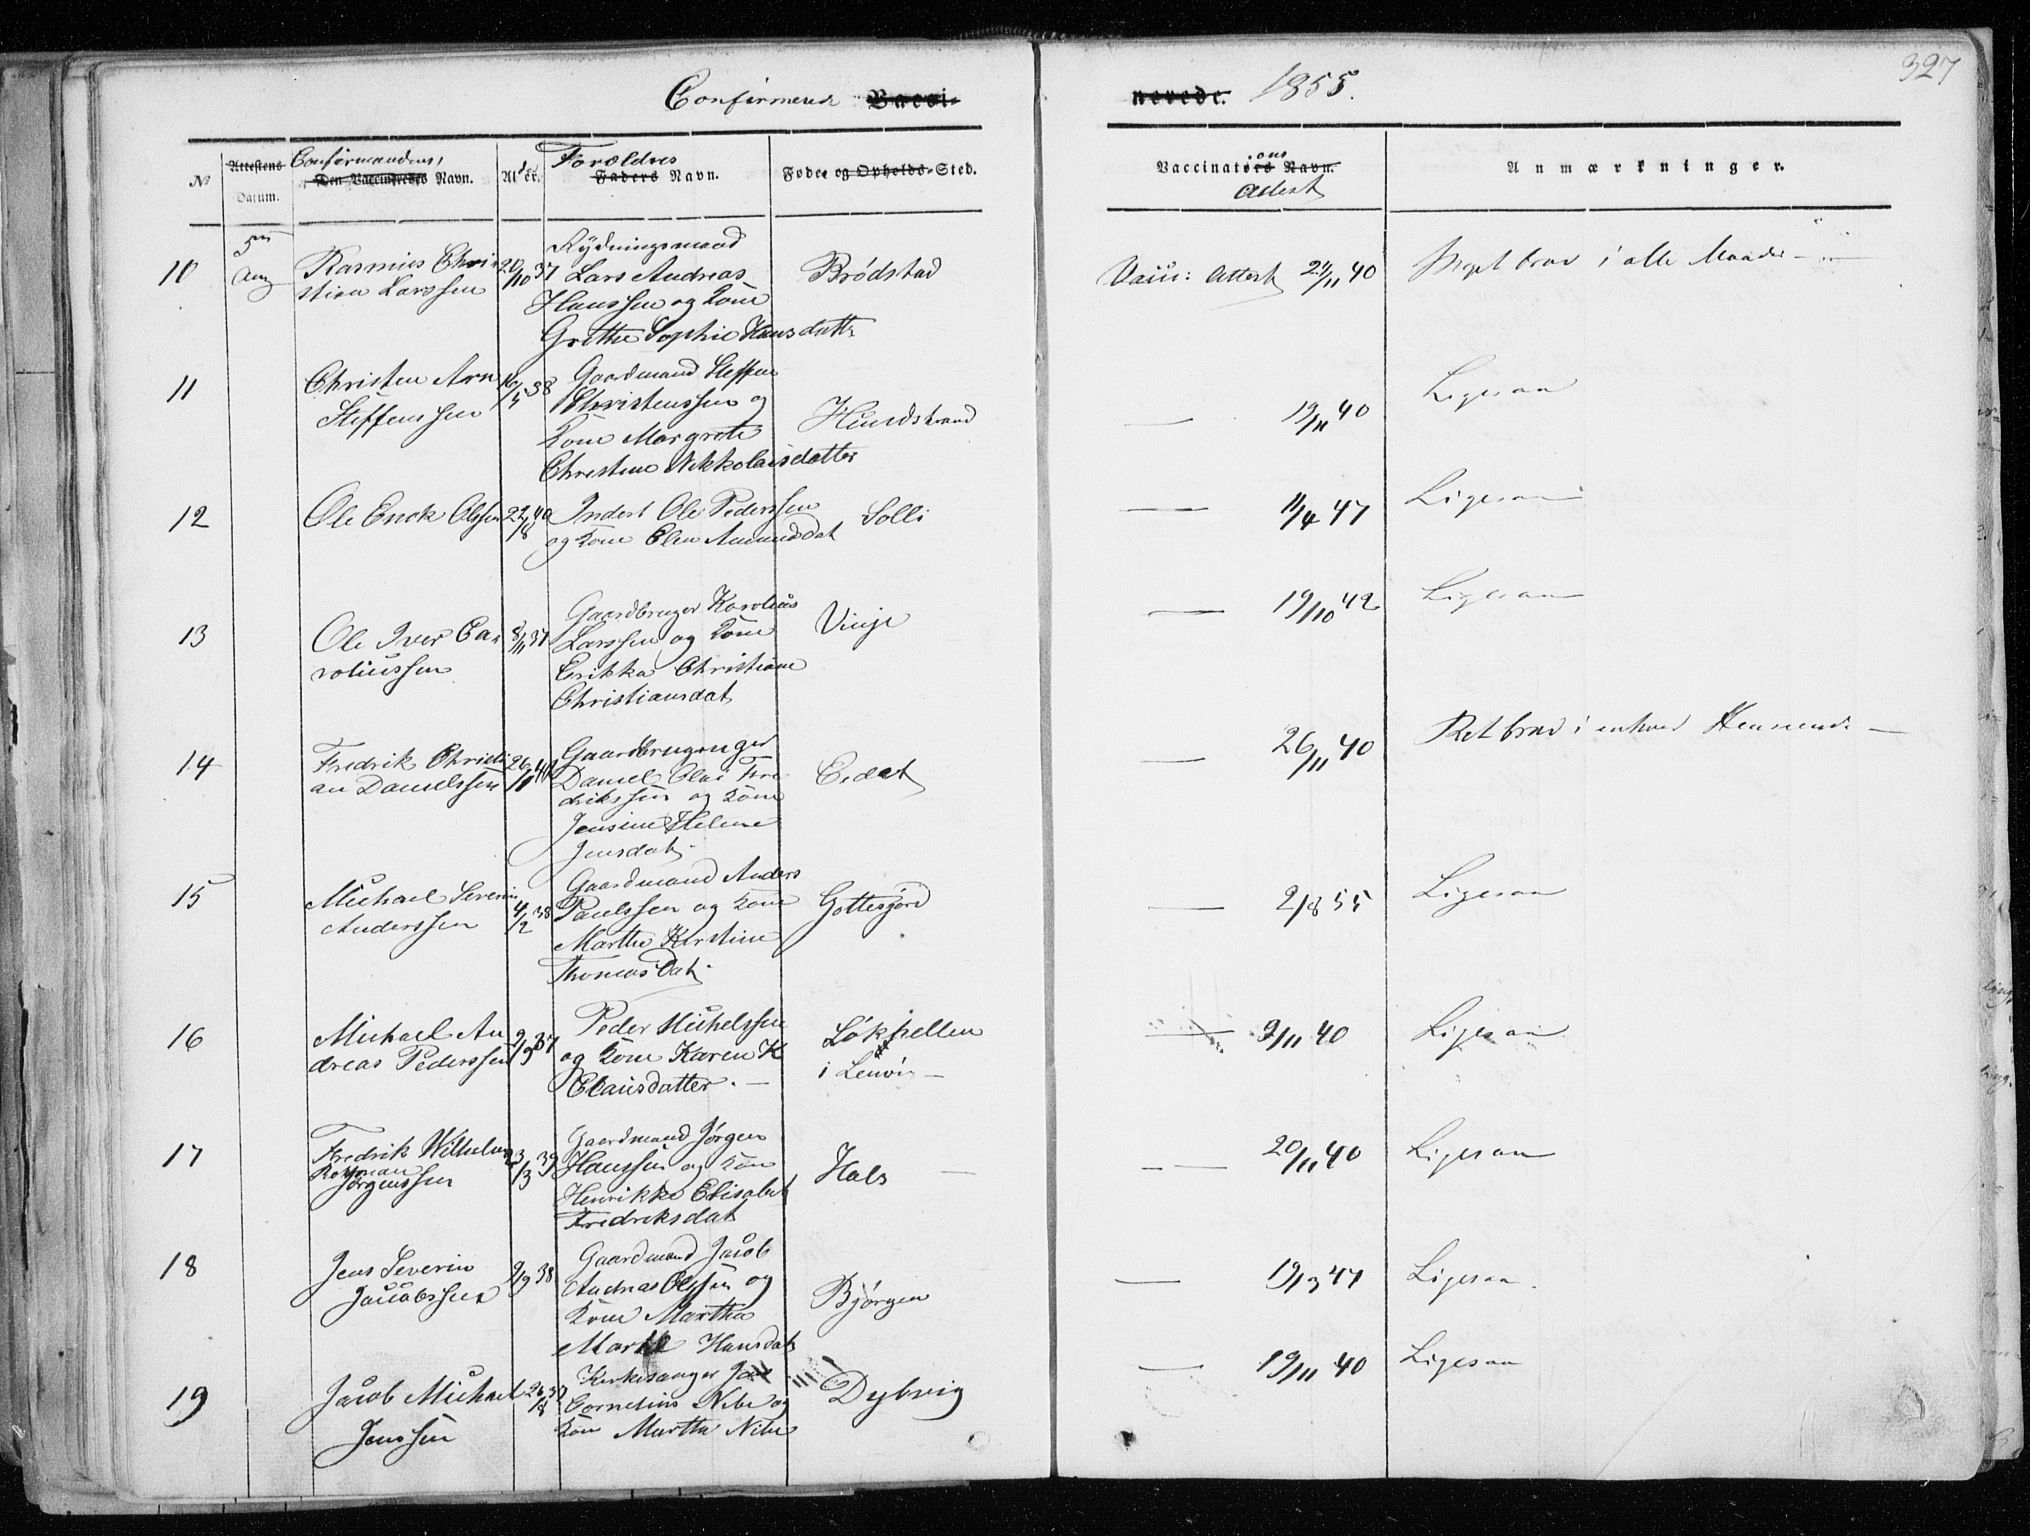 327
Confirmerede Vacci-
nerede. 1855.
№
Attestens Datum.
Confirmandens
Den Vaccineredes Navn.
Alder.
Forældres
Faders Navn.
Føde- og Opholds-Sted.
Vaccinators Navn.
ons
Attest
Anmærkninger.
10
5te
Aug
Rasmus Chri
stian Larssen
20/10 37
Rydningsmand
Lars Andreas
Hanssen og Kone
Grethe Sophie Hansdatter
Brødstad
Vacc: Attest 24/11 40
Meget brav i alle Maader
11
Christen Arn
Steffenssen
10/4 38
Gaardmand Steffen
Christenssen og
Kone Margrete
Christine Nikkolaisdatter
Hundstrand
— 19/11 40
Ligesaa
12
Ole Enok Olssen
22/8 40
Inderst Ole Pederssen
og Kone Elen Amundsdat
Solli
— 11/4 47
Ligesaa
13
Ole Iver Ca
roliussen
8/11 37
Gaardbruger Karolius
Larssen og Kone
Erikka Christiane
Christiansdat
Vinje
— 19/10 42
Ligesaa
14
Fredrik Christi
an Danielssen
26/10 40
Gaardbrugruger
Daniel Olai Fre
drikssen og Kone
Jensine Helene
Jensdat
Eidet
— 26/11 40
Ret brav i enhver Henseende —
15
Michael Severin
Anderssen
4/2 38
Gaardmand Anders
Paulssen og Kone
Marthe Kirstine
Thomasdat.
Gottesjord
— 2/8 55
Ligesaa
16
Michael An
dreas Pederssen
9/9 37
Peder Michelssen
og Kone Karen K
Clausdatter. —
Løkhellen
i Lenvig —
— 9/11 40
Ligesaa
17
Fredrik Wilhelm
Jørgenssen
23/3 39
Gaardmand Jørgen
Hanssen og Kone
Henrikke Elisabet
Fredriksdat
Hals —
— 20/11 40
Ligesaa
18
Jens Severin
Jacobssen
9/9 38
Gaardmand Jacob
Andreas Olssen og
Kone Martha
Marte Hansdat
Bjørgen
— 19/3 47
Ligesaa.
19
Jacob Michael
Jenssen
26/8 37
Kirkesanger Jens
Cornelius Nibe og
Kone Martha Nibe
Dybvig
— 19/11 40
Ligesaa